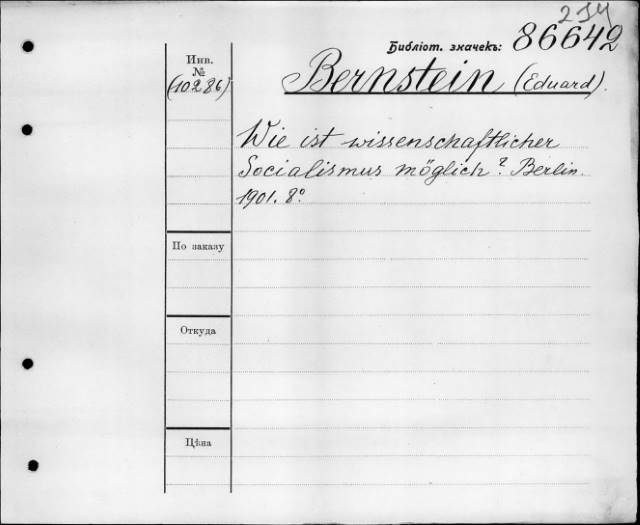 234
Библіот. значекъ: 86642
Инв.
№
(10286)
Bernstein (Eduard).
Wie ist wissenschaftlicher
Socialismus möglich? Berlin.
1901. 8º
По заказу
Откуда
Цѣна